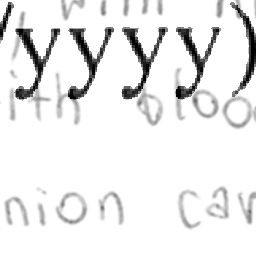 with
/yyyy)
ith bloo
nion car